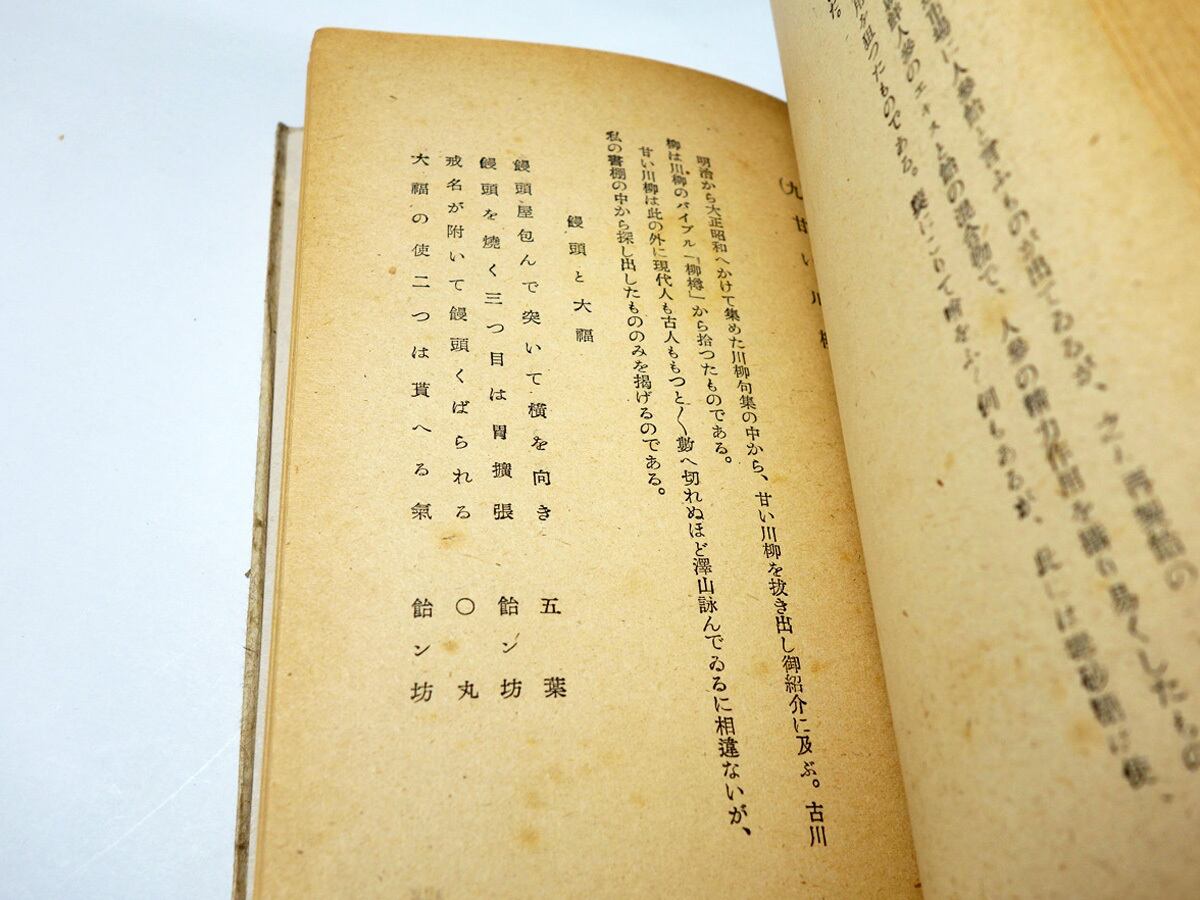 場に人參飴と言ふものが出てゐるが、之
再製飴の
人參のエキスと飴の混合物で、人參の精力作用を
り易くしたもの
を狙つたものである。
にこりて
もあるが、
には
た。
(九)甘い川柳
明治から大正昭和へかけて集めた川柳句集の中から、甘い川柳を抜き出し御紹介に及ぶ。古川
柳は川柳のバイブル「柳樽」から拾つたものである。
甘い川柳は此の外に現代人も古人ももつと〱數へ切れぬほど澤山詠んでゐるに相違ないが、
私の書棚の中から探し出したもののみを揭げるのである。
饅頭と大福
饅頭屋包んで突いて横を向き 五葉
饅頭を燒く三つ目は胃擴張 飴ン坊
戒名が附いて饅頭くばられる 〇丸
大福の使二つは貰へる氣 飴ン坊